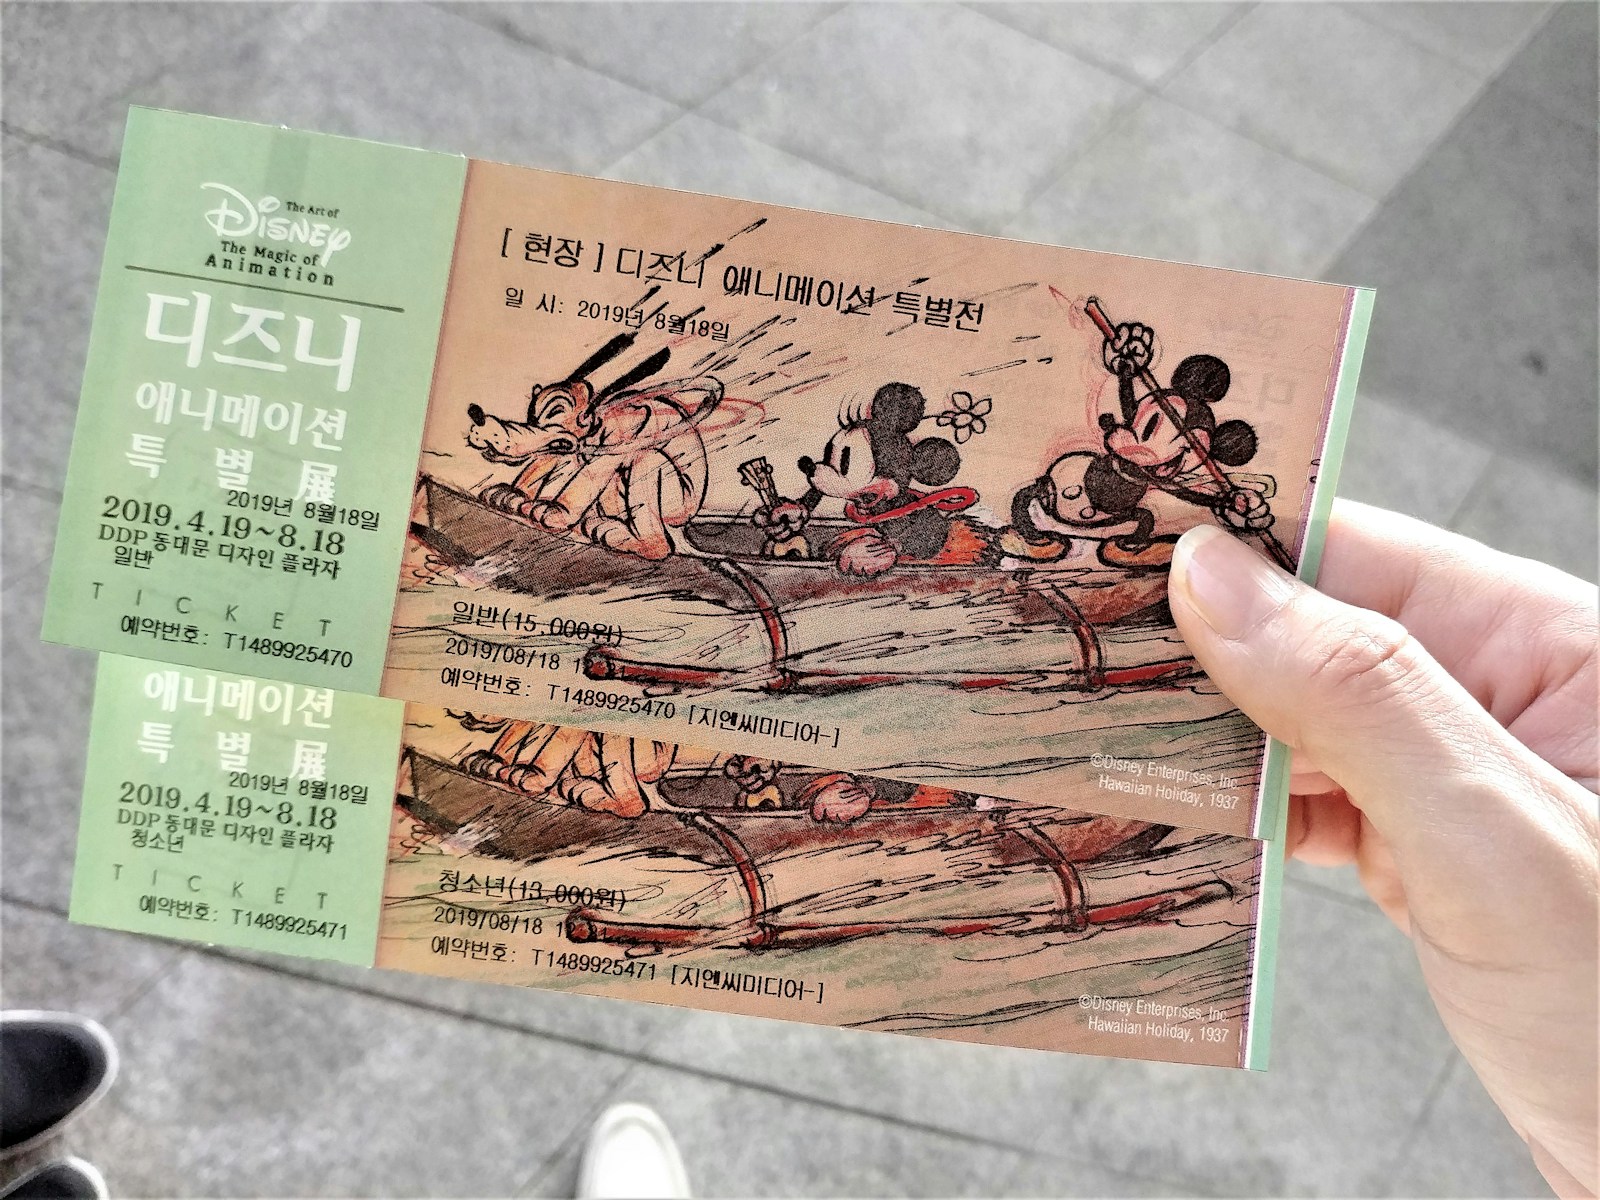 The Art of
Disney
The Magic of
Animation
디즈니
애니메이션
특 별 展
2019년 8월18일
2019.4.19~8.18
DDP 동대문 디자인 플라자
일반
TICKET
예약번호: T1489925470
[ 현장 ] 디즈니 애니메이션 특별전
일 시: 2019년 8월18일
일반(15,000원)
2019/08/18
예약번호: T1489925470 [지엔씨미디어-]
©Disney Enterprises, Inc.
Hawaiian Holiday, 1937
애니메이션
특 별 展
2019년 8월18일
2019.4.19~8.18
DDP 동대문 디자인 플라자
청소년
TICKET
예약번호: T1489925471
청소년(13,000원)
2019/08/18
예약번호: T1489925471 [지엔씨미디어-]
©Disney Enterprises, Inc.
Hawaiian Holiday, 1937